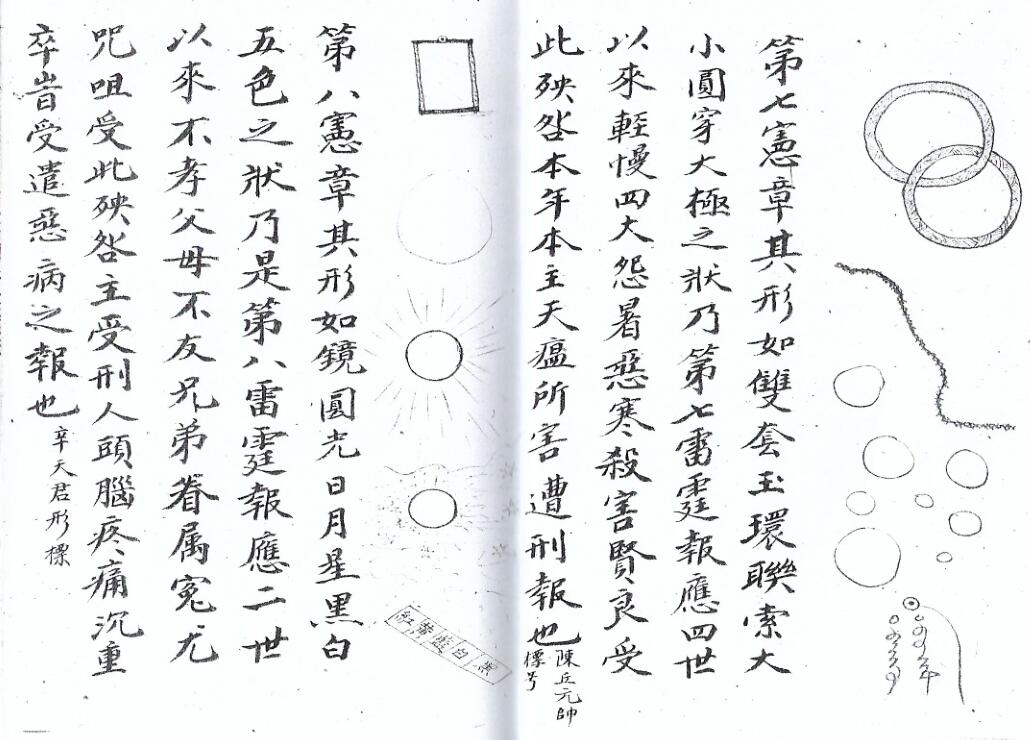 第七憲章其形如雙套玉環聯索大
小圓穿大極之狀乃第七雷霆報應四世
以來輕慢四大怨暑惡寒殺害賢良受
此殃咎本年本主天瘟所害遭刑報也
陳丘元帥
標号
第八憲章其形如鏡圓光日月星黑白
五色之狀乃是第八雷霆報應二世
以來不孝父毋不友兄弟眷属冤尤
咒咀受此殃咎主受刑人頭腦疼痛沉重
卒皆受遣惡病之報也
辛天君形標
紅黄藍白黑